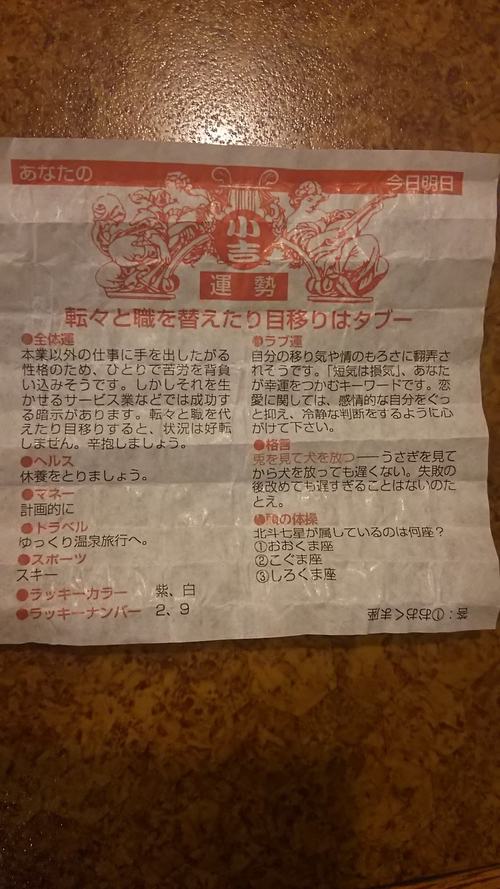 あなたの
今日明日
小吉
運勢
転々と職を替えたり目移りはタブー
●全体運
本業以外の仕事に手を出したがる
性格のため、ひとりで苦労を背負
い込みそうです。しかしそれを生
かせるサービス業などでは成功す
る暗示があります。転々と職を代
えたり目移りすると、状況は好転
しません。辛抱しましょう。
●ヘルス
休養をとりましょう。
●マネー
計画的に
●トラベル
ゆっくり温泉旅行へ。
●スポーツ
スキー
●ラッキーカラー 紫、白
●ラッキーナンバー 2、9
●ラブ運
自分の移り気や情のもろさに翻弄さ
れそうです。「短気は損気」、あなた
が幸運をつかむキーワードです。恋
愛に関しては、感情的な自分をぐっ
と抑え、冷静な判断をするように心
がけて下さい。
●格言
兎を見て犬を放つ――うさぎを見て
から犬を放っても遅くない。失敗の
後改めても遅すぎることはないのた
とえ。
●頭の体操
北斗七星が属しているのは何座？
①おおくま座
②こぐま座
③しろくま座
答：①おおくま座